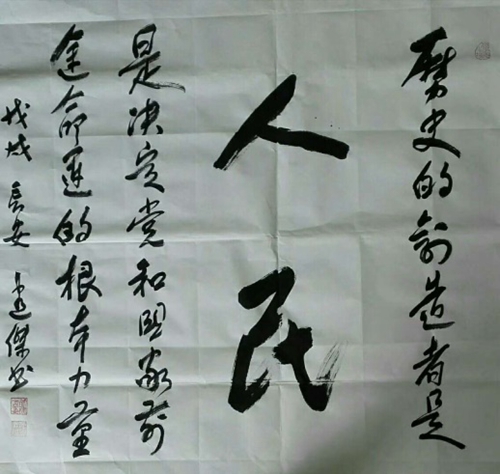 歷史的創造者是
人民
是决定党和国家前
途命運的根本力量
戊戌 長安 傑书